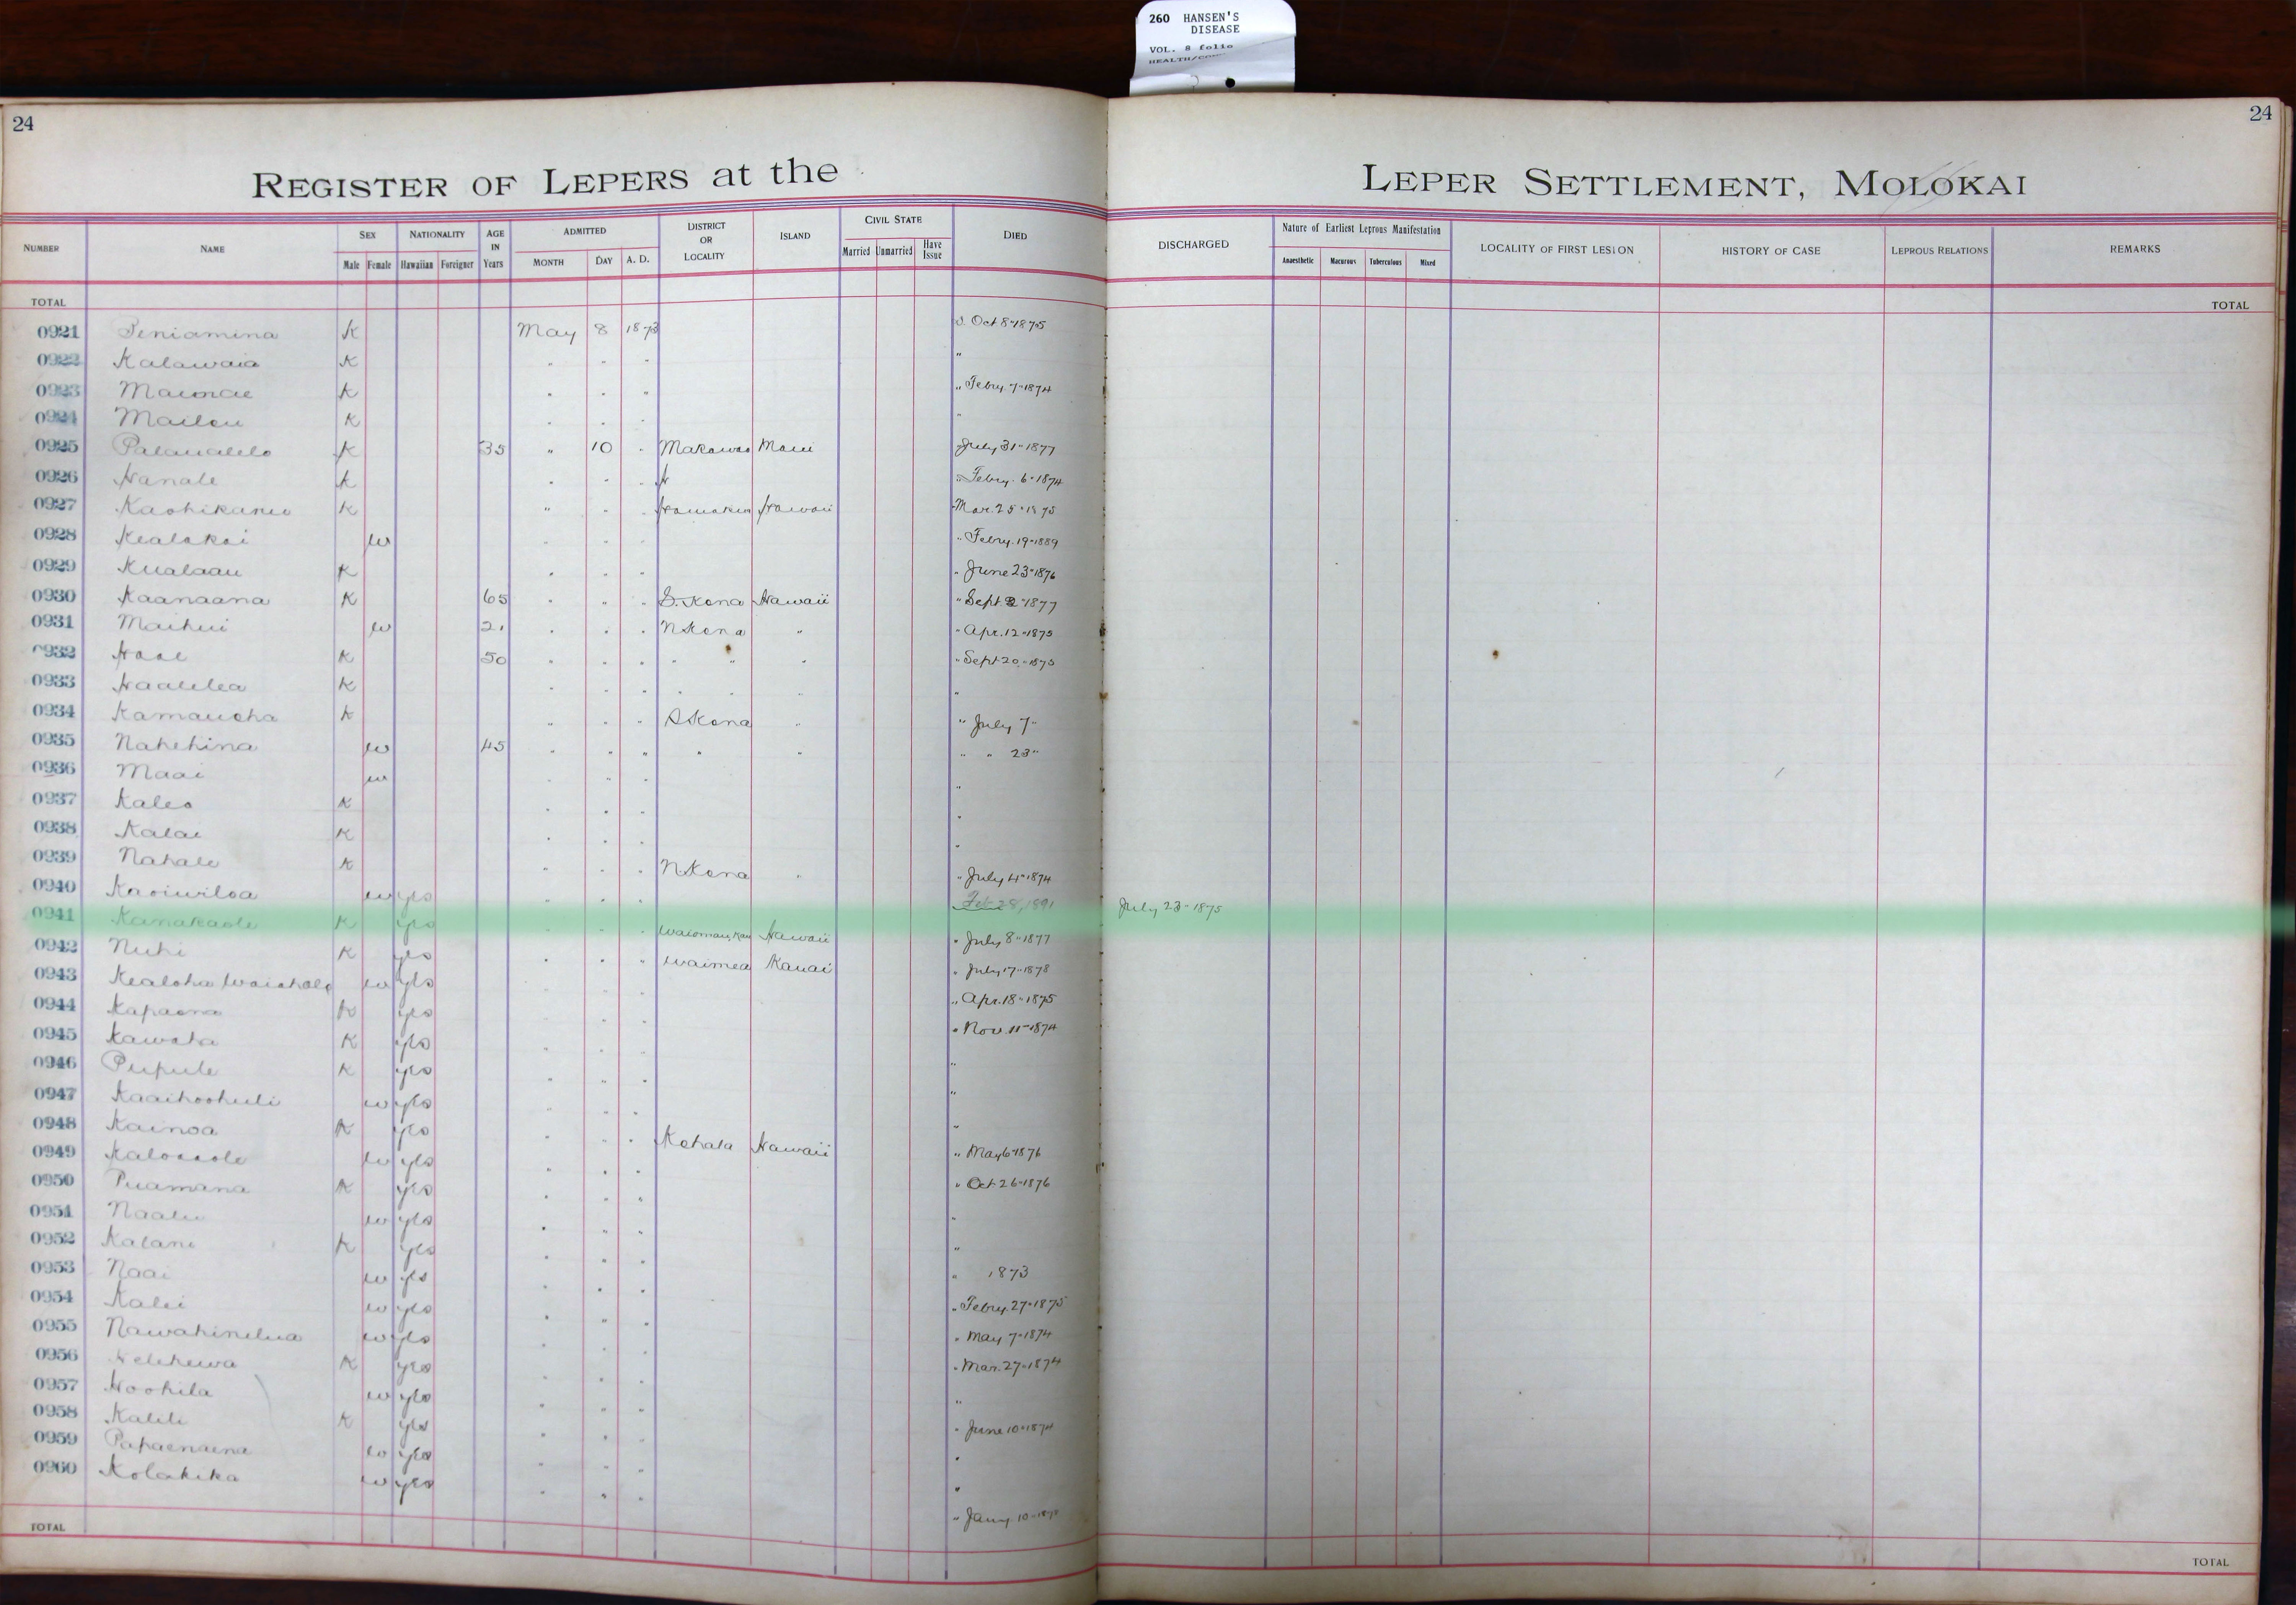 260 HANSEN'S
DISEASE
VOL. 8 folio
24
24
REGISTER OF LEPERS at the LEPER SETTLEMENT, MOLOKAI
NUMBER NAME SEX Male Female NATIONALITY Hawaiian Foreigner AGE IN Years ADMITTED MONTH DAY A. D. DISTRICT OR LOCALITY ISLAND CIVIL STATE Married Unmarried Have Issue DIED DISCHARGED Nature of Earliest Leprous Manifestation Anaesthetic Macurous Tuberculous Mixed LOCALITY OF FIRST LESION HISTORY OF CASE LEPROUS RELATIONS REMARKS
TOTAL TOTAL
0921 Peniamina K May 8 1873 Oct 8" 1875
0922 Kalawaia K " " " "
0923 K " " " " Febry. 7" 1874
0924 K " " " "
0925 Palaualelo K 35 " 10 " Makawao Maui July 31" 1877
0926 Hanale K " " " " Febry. 6" 1874
0927 K " " " Hamakua Hawaii Mar. 25" 1875
0928 Kealakai w " " " " Febry. 19" 1889
0929 Kualaau K " " " " June 23" 1876
0930 Kaanaana K 65 " " " S. Kona Hawaii " Sept 1877
0931 Maihui w 21 " " " N Kona " " Apr. 12" 1875
0932 K 50 " " " " " " " Sept 20" 1875
0933 Haalelea K " " " " " " "
0934 Kamauoha K " " " S Kona " " July 7"
0935 Nahehina w 45 " " " " " " " 23"
0936 Maai w " " " "
0937 Kaleo K " " " "
0938 Kalai K " " " "
0939 Nahale K " " " N Kona " " July 4" 1874
0940 Kaoiwiloa w yes " " " Feb 28, 1891 July 23" 1875
0941 Kanakaole K yes " " " Hawaii " July 8" 1877
0942 Nuhi K yes " " " Waimea Kauai " July 17" 1878
0943 Kealoha w yes " " " " Apr. 18" 1875
0944 Kapaona K yes " " " " Nov. 11" 1874
0945 Kawaha K yes " " " "
0946 Pupule K yes " " " "
0947 Kaaihoohuli w yes " " " "
0948 Kainoa K yes " " " Kohala Hawaii " May 6" 1876
0949 w yes " " " " Oct 26" 1876
0950 Puamana K yes " " " "
0951 w yes " " " "
0952 Kalani K yes " " " " 1873
0953 Naai w yes " " " " Febry. 27" 1875
0954 Kalei w yes " " " " May 7" 1874
0955 Nawahinelua w yes " " " " Mar. 27" 1874
0956 K yes " " " "
0957 Hoohila w yes " " " " June 10" 1874
0958 Kalili K yes " " " "
0959 Papaenaena w yes " " " "
0960 Kolakika w yes " " " " Jany. 10"
TOTAL TOTAL